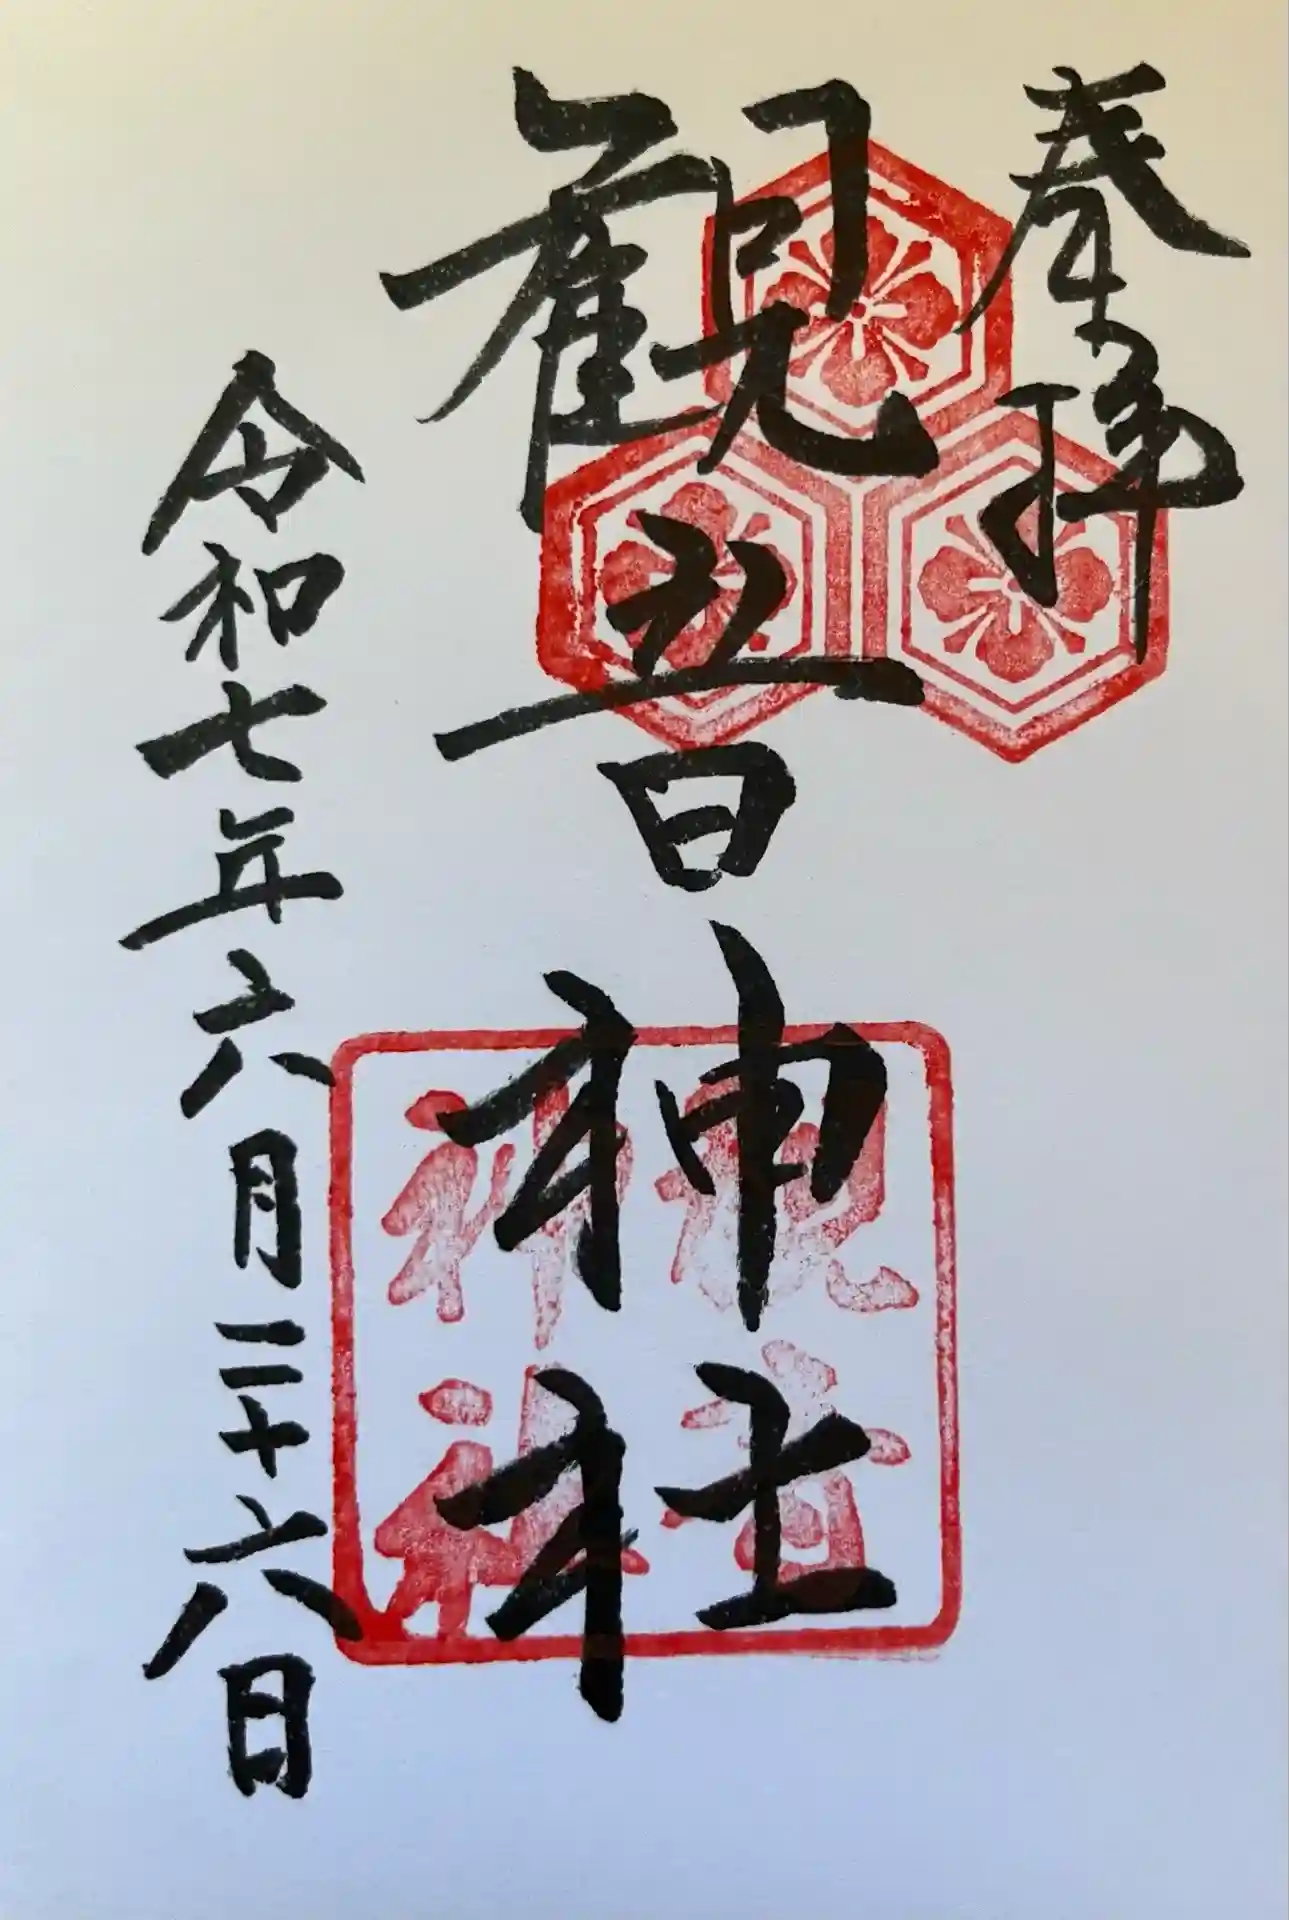 奉拝
観音神社
令和七年六月二十六日
観音
神社